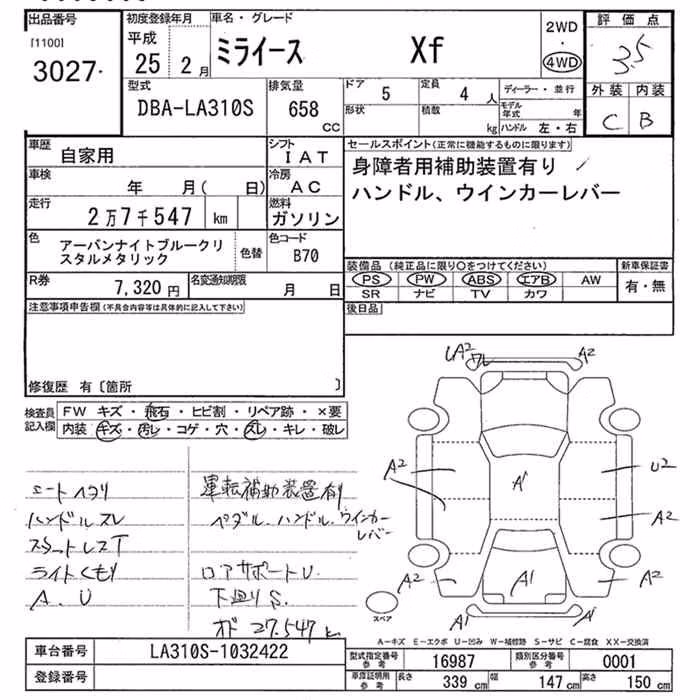 出品番号
[1100]
3027
初度登録年月
平成
25 2 月
車名・グレード
ミライース Xf
2WD
・
4WD
評価点
3.5
外装 内装
C B
型式
DBA-LA310S
排気量
658
CC
ドア
5
定員
4 人
形状
積載
kg
ディーラー・並行
モデル年式 年
ハンドル 左・右
車歴
自家用
シフト
IAT
車検
年 月( 日)
冷房
AC
走行
2万7千547 km
燃料
ガソリン
色
アーバンナイトブルークリ
スタルメタリック
色替
色コード
B70
R券
7,320 円
名変通知期限
月 日
セールスポイント(正常に機能するものに限ります)
身障者用補助装置有り
ハンドル、ウインカーレバー
装備品 (純正品に限り〇をつけてください)
PS PW ABS エアB AW
SR ナビ TV カワ
新車保証書
有・無
注意事項申告欄(不具合内容等は具体的に記入して下さい)
後日品
修復歴 有〔箇所 〕
検査員
記入欄
FW キズ・飛石・ヒビ割・リペア跡・×要
内装 キズ・汚レ・コゲ・穴・スレ・キレ・破レ
シートヘタリ
ハンドルスレ
スタートレスT
ライトくもり
A.U
運転補助装置有り
ペダル.ハンドル.ウインカー
レバー
ロアサポートU.
下廻りS.
オド 27.547k
A2 ワレ A2
A2 A1 U2
A2
A2 A1 A2
A1 A1
スペア
A−キズ E−エクボ U−凹み W−補修跡 S−サビ C−腐食 XX−交換済
車台番号
LA310S-1032422
登録番号
型式指定番号
参考
16987
類別区分番号
参考
0001
車庫証明用
参考
長さ 339 cm 幅 147 cm 高さ 150 cm